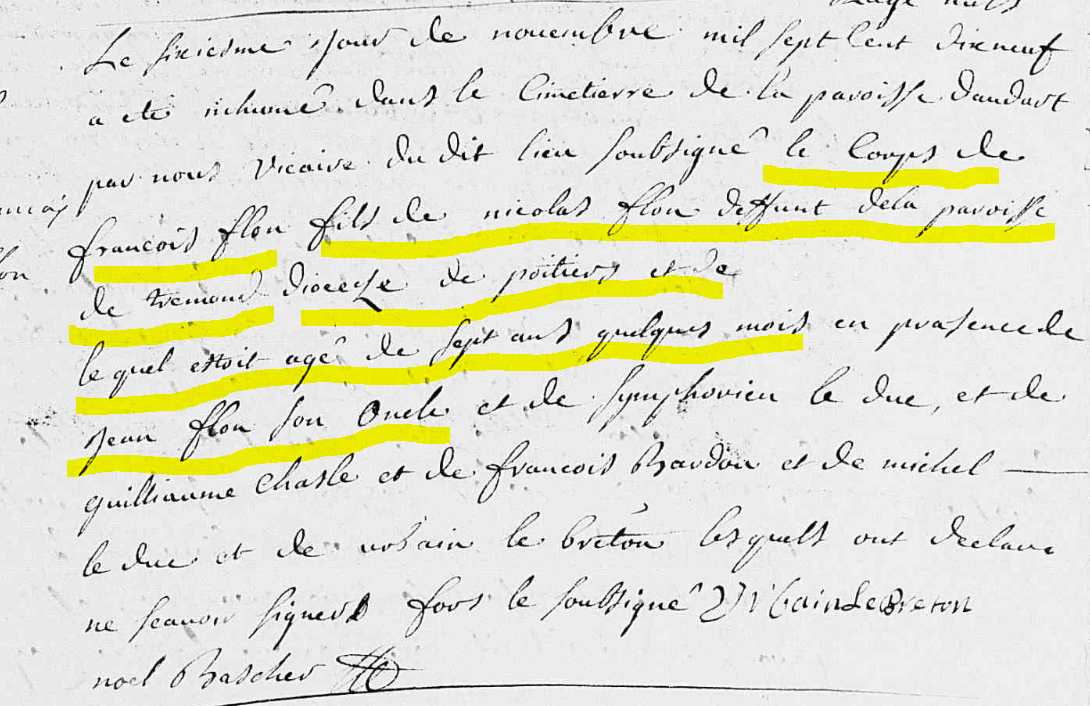 Le sixiesme jour de novembre mil sept cent dix neuf
a ete inhumé dans le Cimetierre de la paroisse dandart
par nous vicaire du dit lieu soubsigné le Corps de
francois flon fils de nicolas flon deffunt de la paroisse
de tremond diocese de poitiers et de
le quel estoit agé de sept ans quelques mois en presence de
jean flon son Oncle et de symphorien le duc, et de
guilliaume Chasle et de francois Bardou et de michel
le duc et de urbain le breton lesquels ont declare
ne scavoir signers fors le soubsigné Urbain Le Breton
noel Bascher